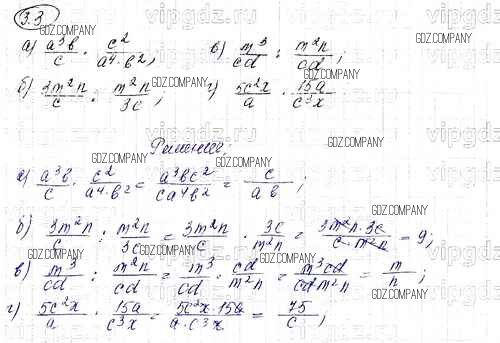 3.3
а) a³b/c · c²/a⁴·b²; в) m³/cd : m²n/cd;
б) 3m²n/c : m²n/3c; г) 5c²x/a · 15a/c³x;
Решение:
а) a³b/c · c²/a⁴b² = a³bc²/ca⁴b² = c/ab;
б) 3m²n/c : m²n/3c = 3m²n/c · 3c/m²n = 3m²n·3c/c·m²n = 9;
в) m³/cd : m²n/cd = m³/cd · cd/m²n = m³cd/cdm²n = m/n;
г) 5c²x/a · 15a/c³x = 5c²x·15a/a·c³x = 75/c;
GDZ.COMPANY
vipgdz.ru